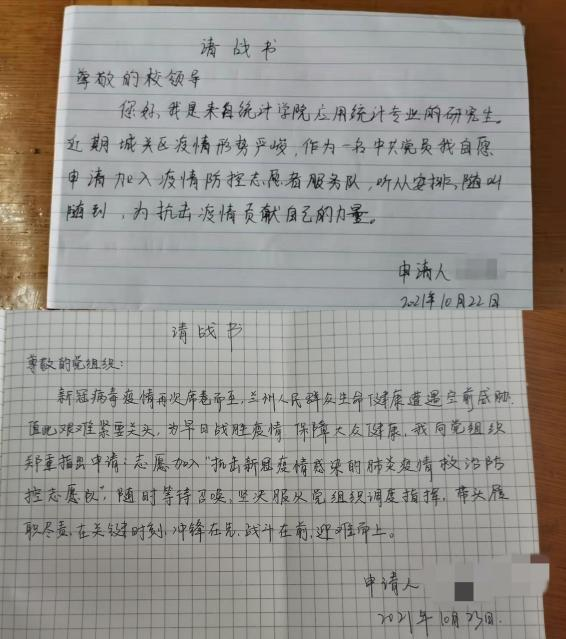 请战书
尊敬的校领导
您好，我是来自统计学院应用统计专业的研究生。
近期城关区疫情形势严峻，作为一名中共党员我自愿
申请加入疫情防控志愿者服务队，听从安排、随叫
随到，为抗击疫情贡献自己的力量。
申请人
2021年10月22日
请战书
尊敬的党组织：
新冠病毒疫情再次席卷而至，兰州人民群众生命健康遭遇空前威胁，
值此艰难紧要关头，为早日战胜疫情 保障大众健康，我向党组织
郑重指出申请：志愿加入“抗击新冠疫情感染的肺炎疫情救治防
控志愿队”，随时等待召唤，坚决服从党组织调度指挥，带头履
职尽责，在关键时刻，冲锋在先，战斗在前，迎难而上。
申请人
2021年10月23日.